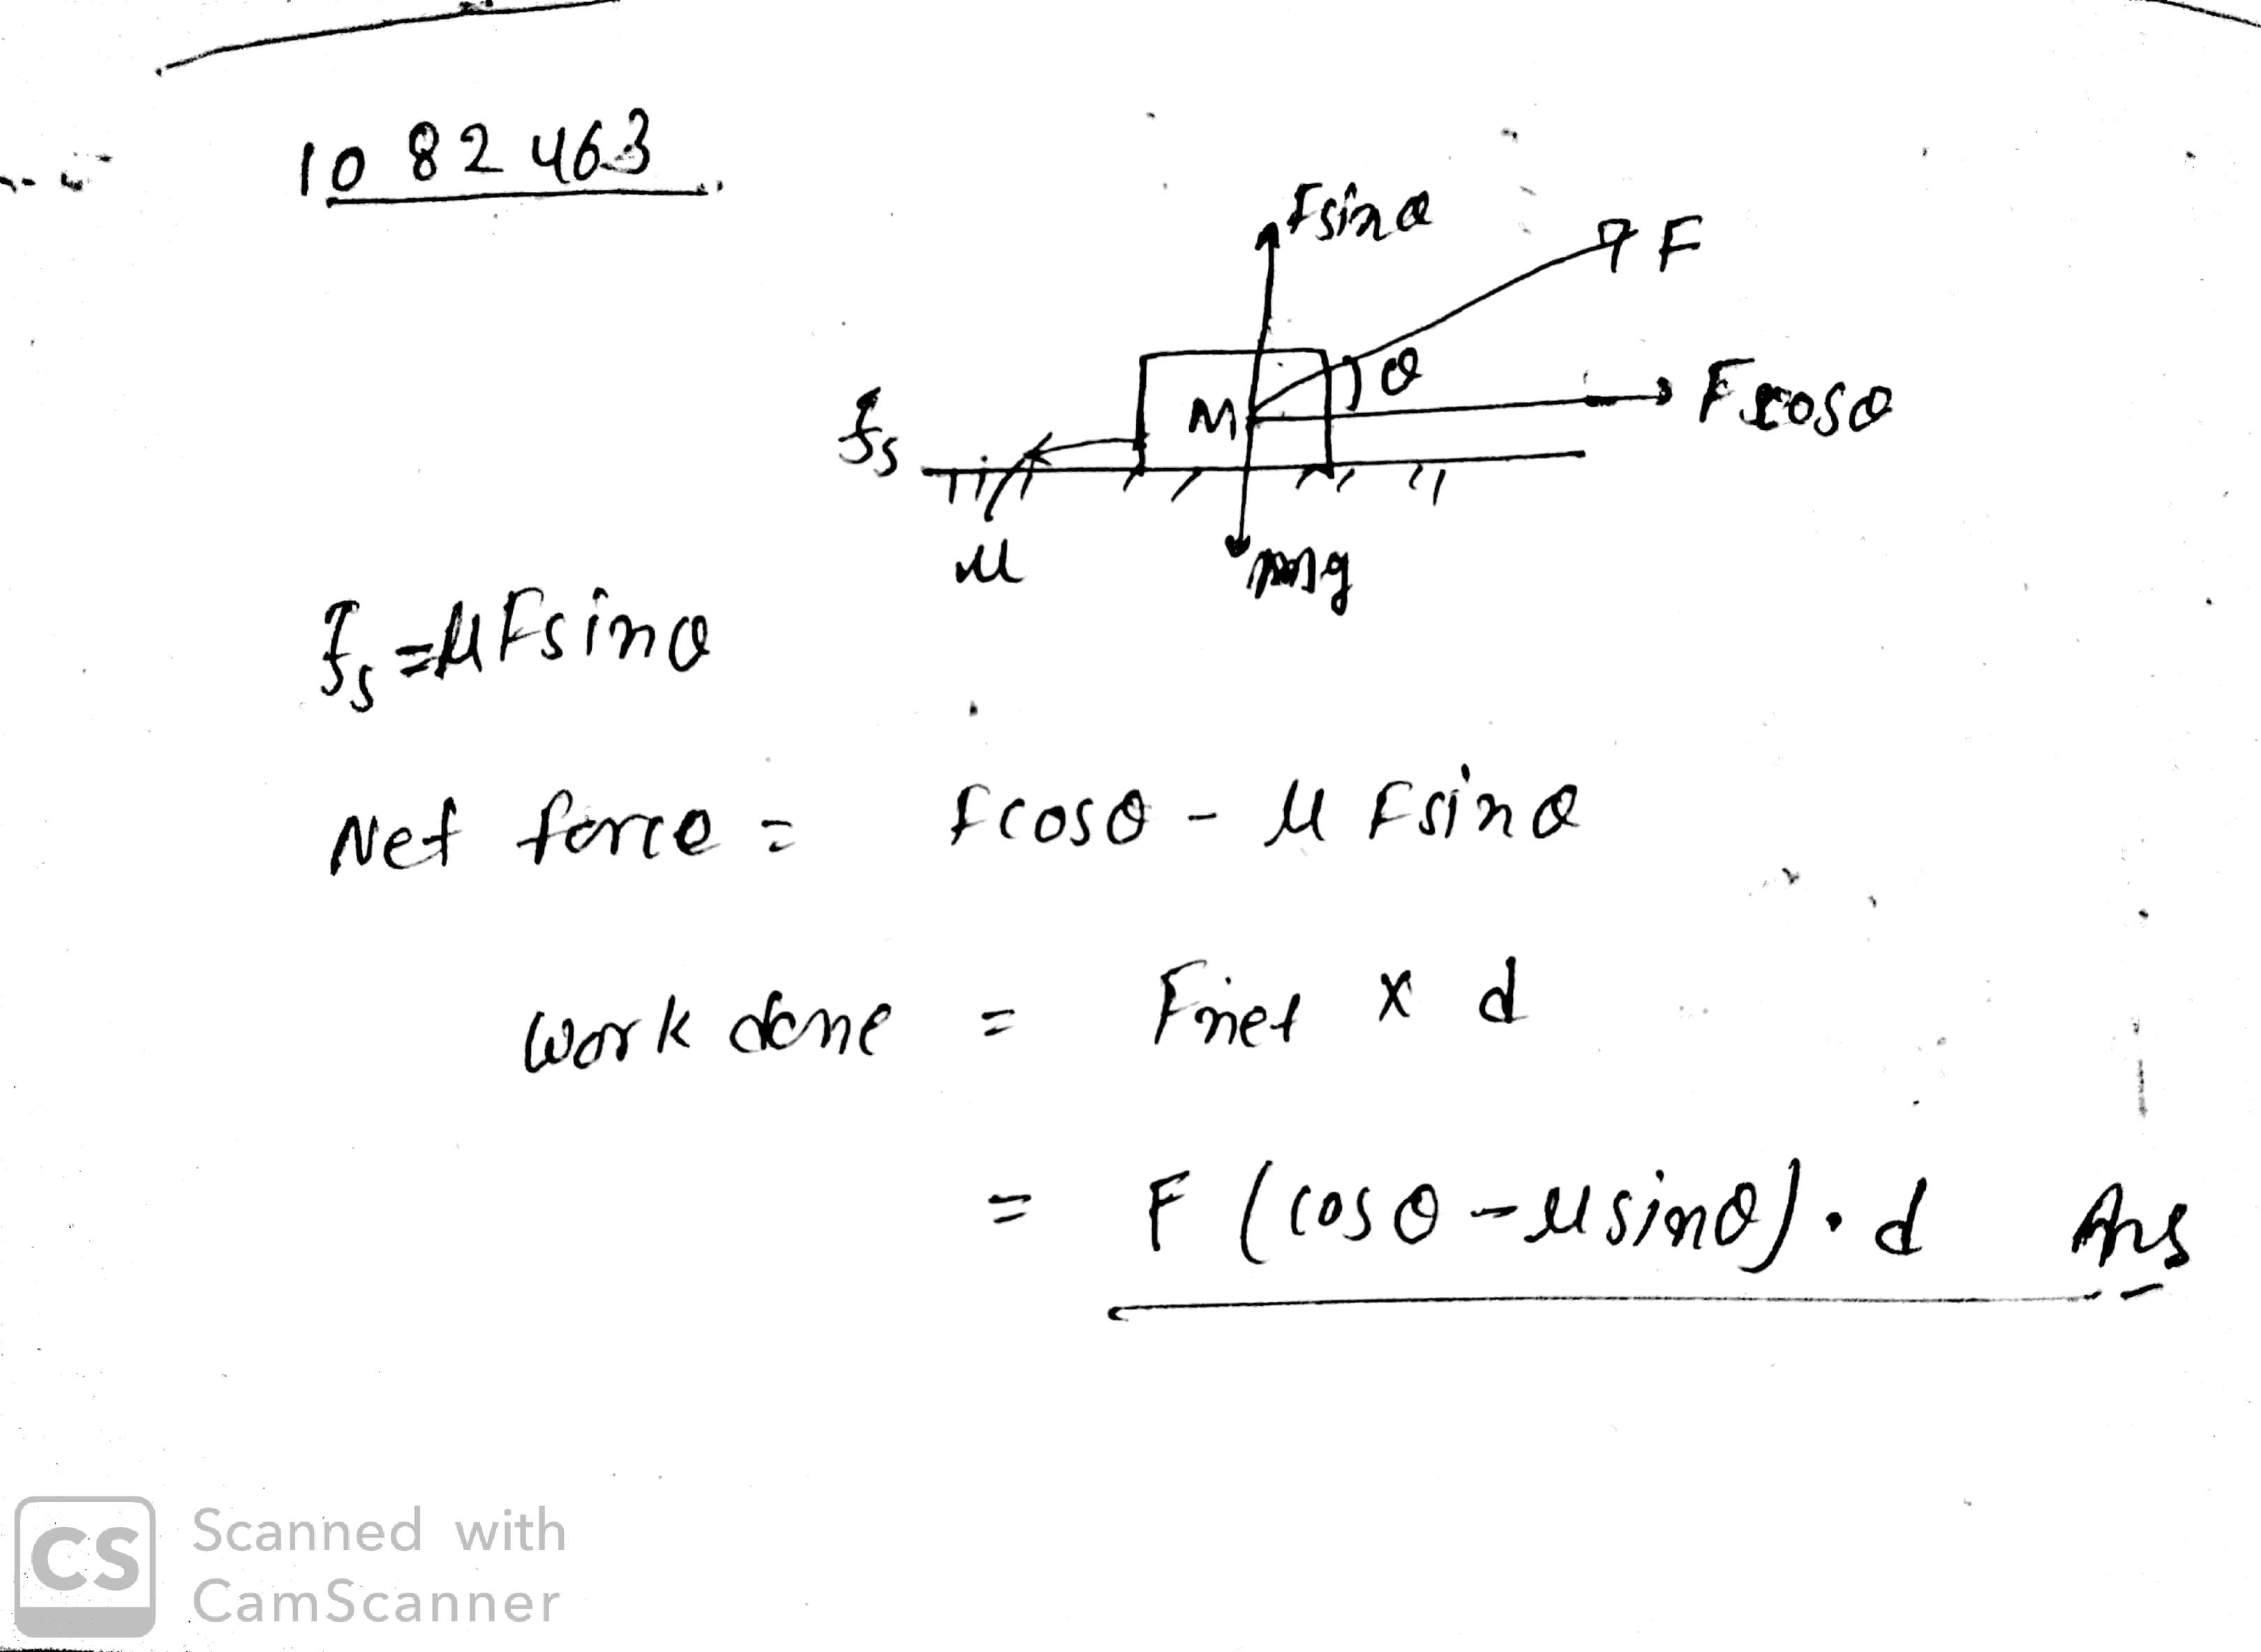 1082463
Fsinθ
F
θ
Fcosθ
M
fs
μ
mg
fs = μFsinθ
Net force = Fcosθ - μ Fsinθ
Work done = Fnet x d
= F (cosθ - μsinθ). d Ans
CS Scanned with
CamScanner